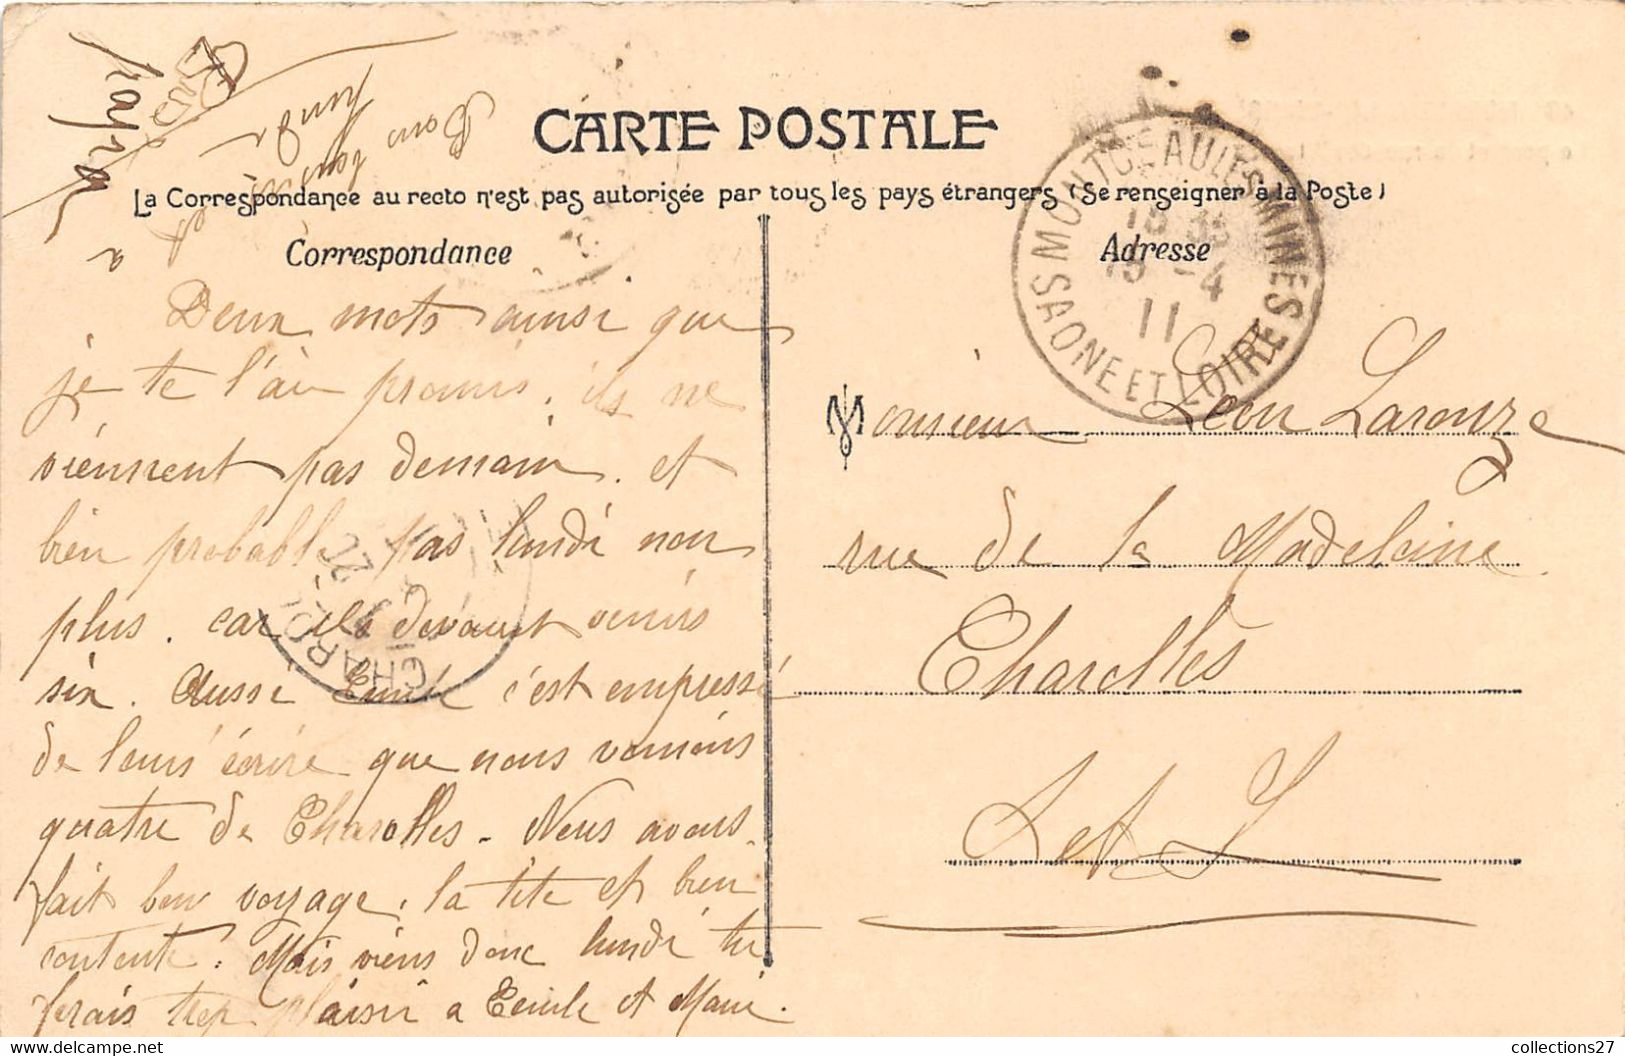 CARTE POSTALE
La Correspondance au recto n'est pas autorisée par tous les pays étrangers (Se renseigner à la Poste)
Correspondance
Deux mots ainsi que
je te l'ai promis. ils ne
viennent pas demain. et
bien probable pas lundi non
plus. car ils devaient venirs
six. Aussi Emile c'est empressé
de leurs écrire que nous venions
quatre de Charolles. Nous avons
fait bon voyage, la tite et bien
contente. Mais viens donc lundi tu
ferais trop plaisir a Emile et Marie.
Bon
a
papa
Adresse
Monsieur Léon Laronze
rue de la Madeleine
Charolles
S et L
MONTCEAU LES MINES
15 35
15 -4
11
SAONE ET LOIRE
CHAROL
collections27